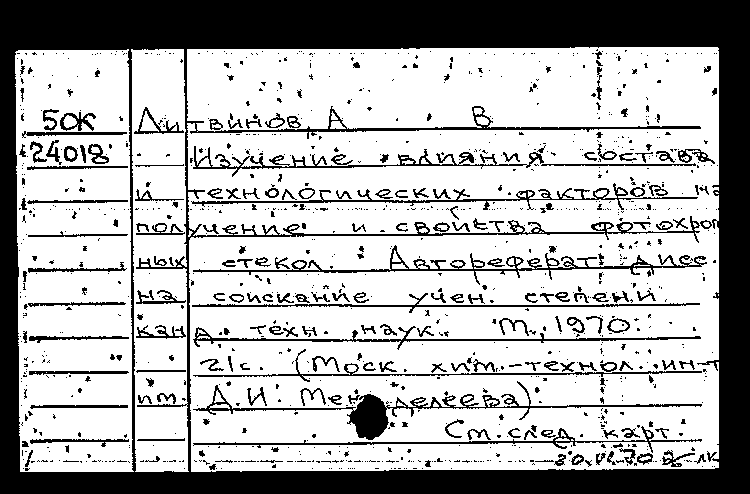 50К Литвинов, А В
24018 Изучение влияния состава
и технологических факторов на
получение и свойства фотохром
ных стекол. Автореферат дисс.
на соискание учен. степени
канд. техн. наук. М., 1970.
21с. (Моск. хим.-технол. ин-т
им. Д.И. Менделеева)
См. след. карт.